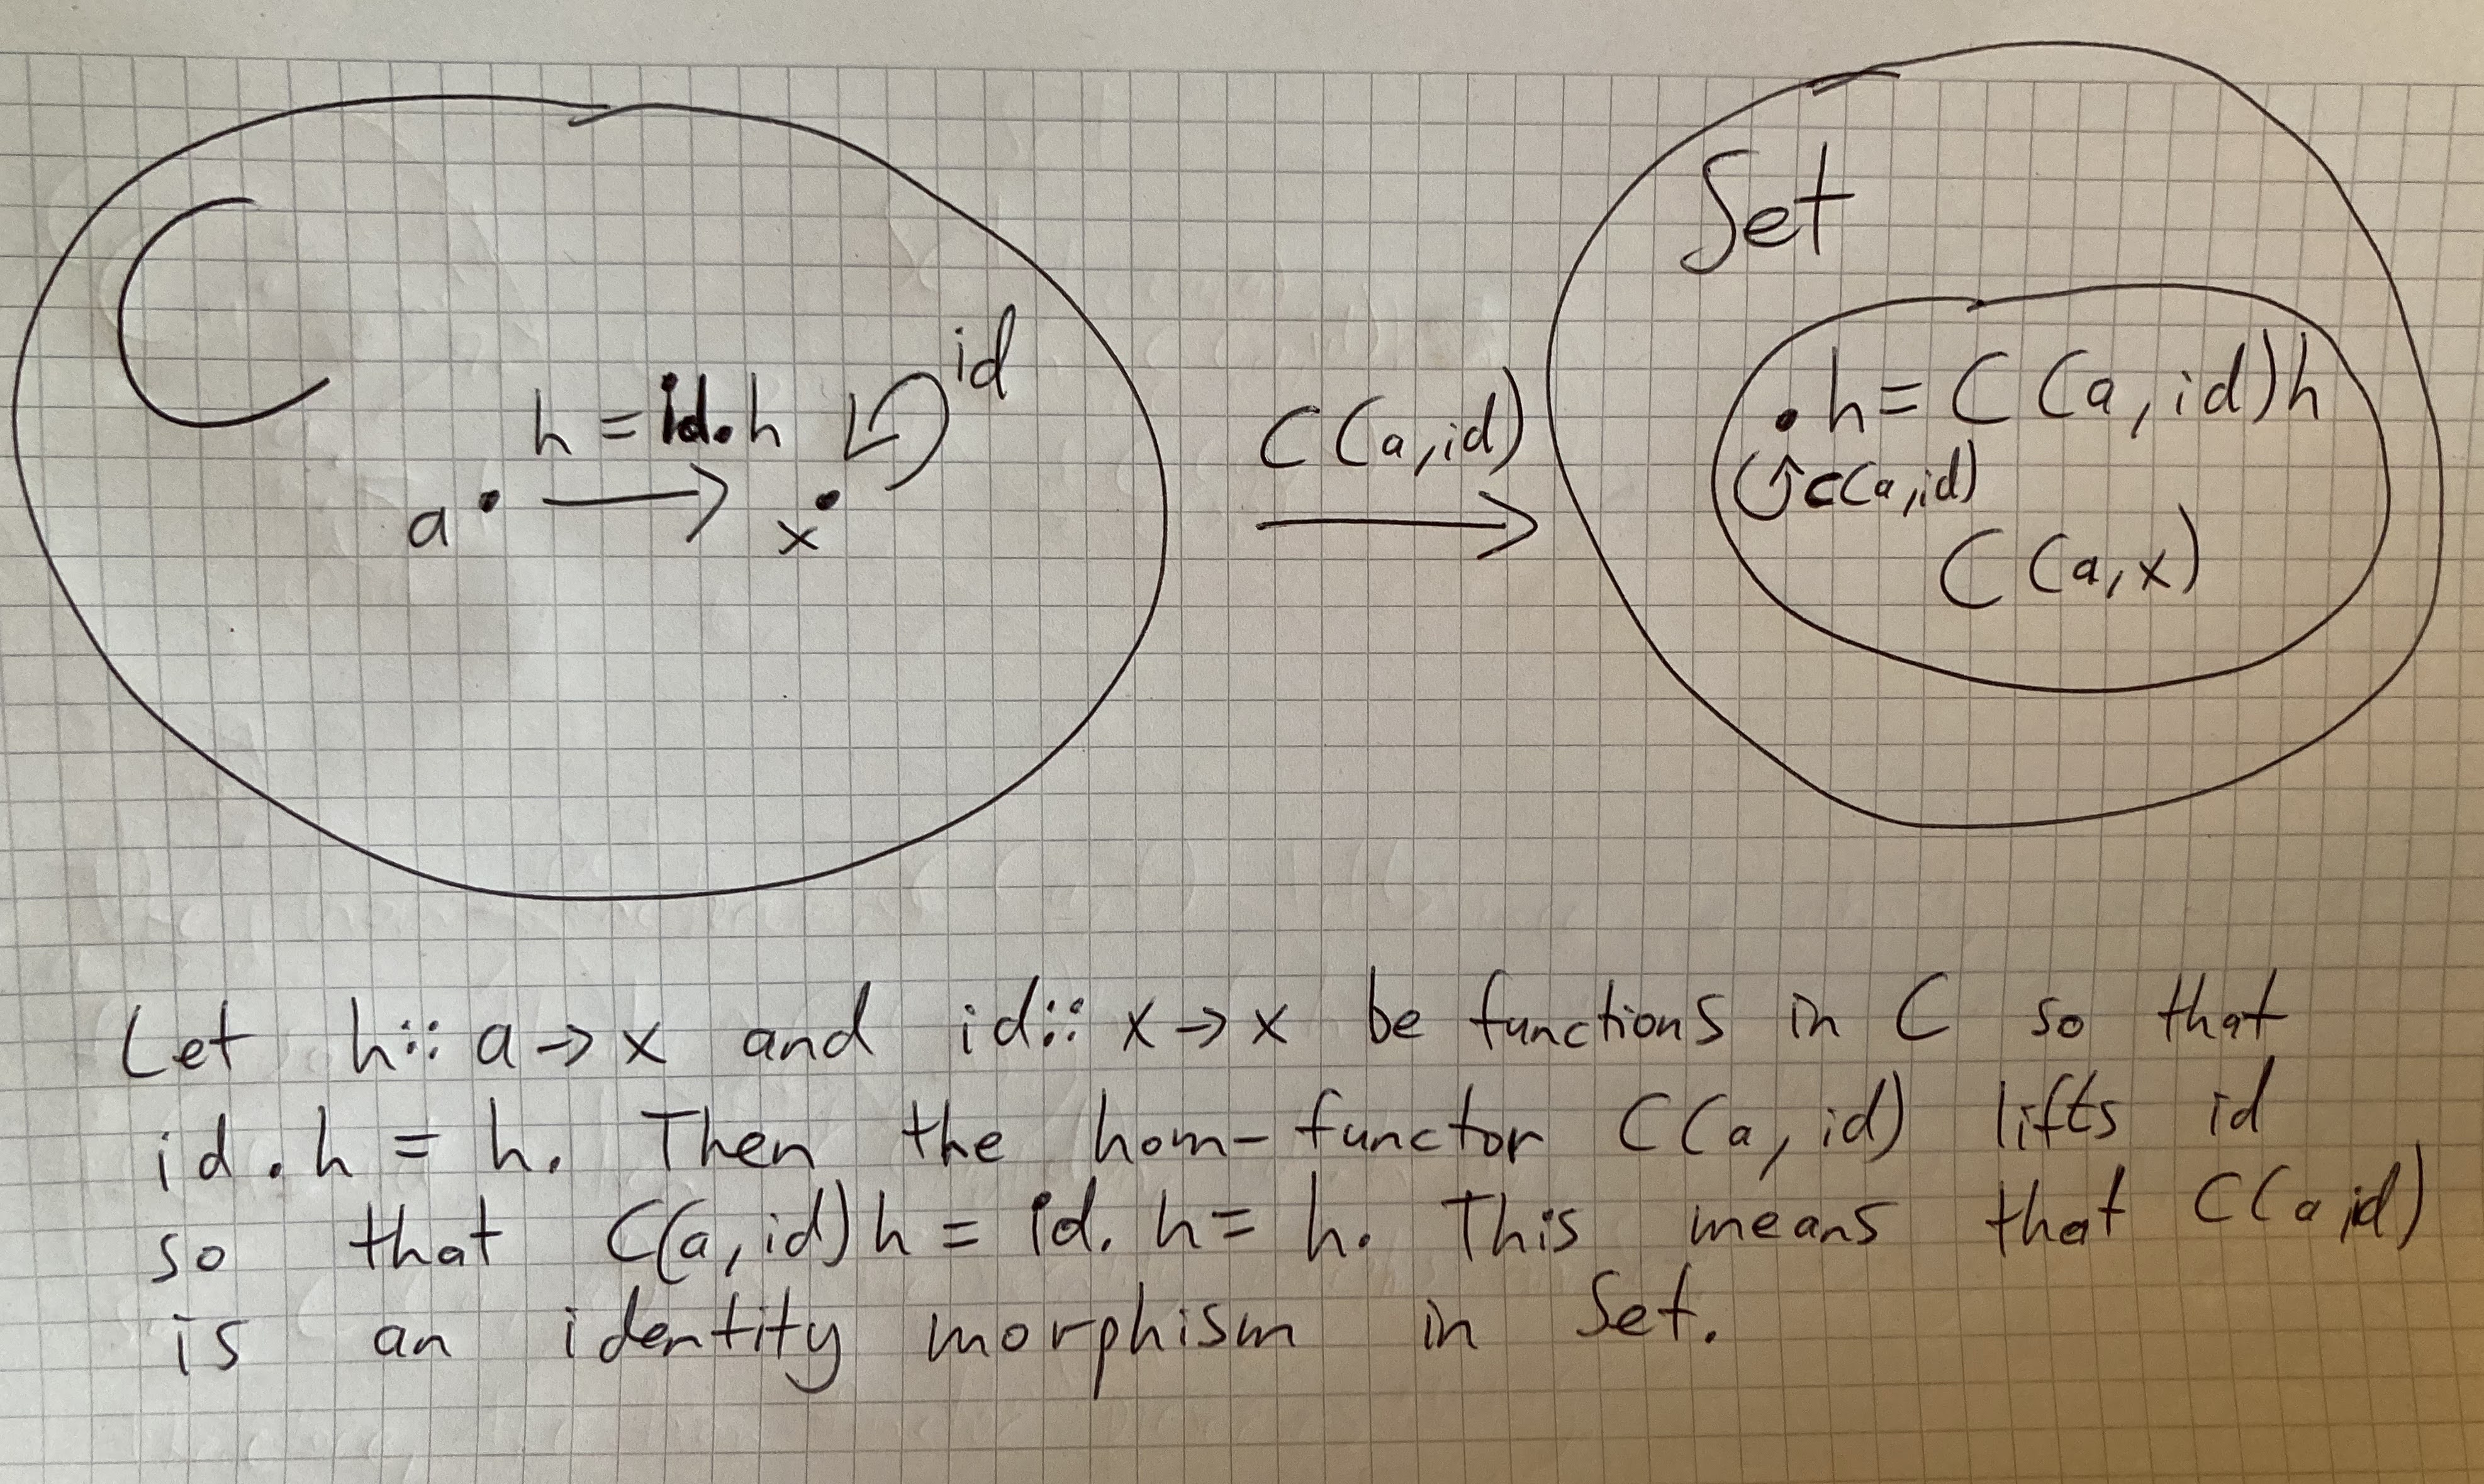 C
Set
id
h = id.h
a
x
C(a,id)
h = C(a,id)h
C(a,id)
C(a,x)
Let h:: a -> x and id:: x -> x be functions in C so that
id.h = h. Then the hom-functor C(a,id) lifts id
so that C(a,id)h = id.h = h. This means that C(a,id)
is an identity morphism in Set.